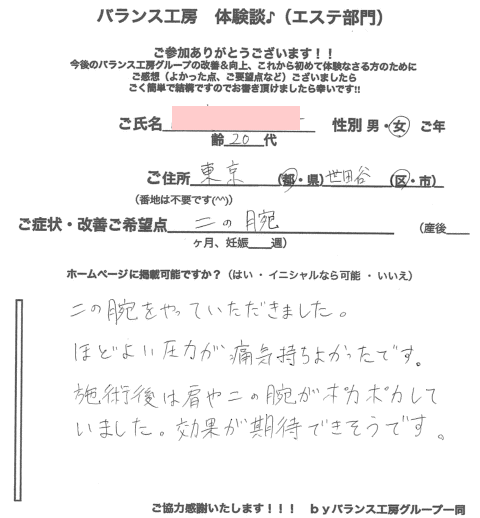 バランス工房　体験談♪（エステ部門）
ご参加ありがとうございます！！
今後のバランス工房グループの改善＆向上、これから初めて体験なさる方のために
ご感想（よかった点、ご要望点など）ございましたら
ごく簡単で結構ですのでお書き頂けましたら幸いです!!
ご氏名　性別 男・女　ご年
齢 20 代
ご住所 東京（都・県）世田谷（区・市）
（番地は不要です(^^)）
ご症状・改善ご希望点 二の腕　（産後
ヶ月、妊娠　週）
ホームページに掲載可能ですか？（はい ・ イニシャルなら可能 ・ いいえ）
二の腕をやっていただきました。
ほどよい圧力が痛気持ちよかったです。
施術後は肩や二の腕がポカポカして
いました。効果が期待できそうです。
ご協力感謝いたします！！！　ｂｙバランス工房グループ一同